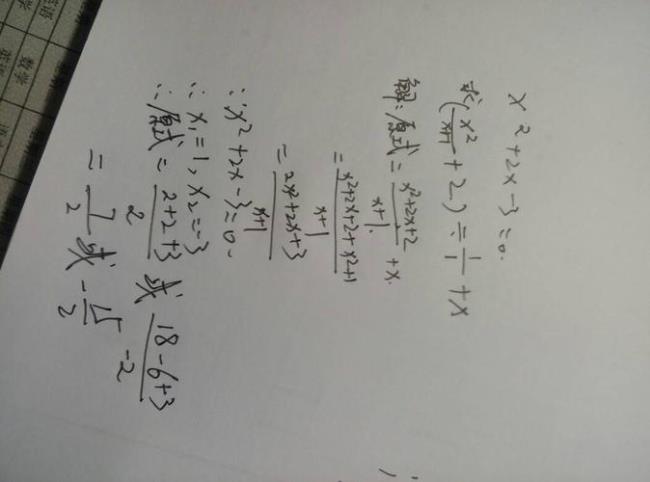 x²+2x-3=0.
求(x²/(x+1)+2)÷1/1+x
解:原式=(x²+2x+2)/(x+1)+x.
=(x²+2x+2+x²+1)/(x+1)
=(2x²+2x+3)/(x+1)
∵x²+2x-3=0.
∴x₁=1,x₂=-3
∴原式=(2+2+3)/2 或 (18-6+3)/-2
=7/2 或 -15/2
数学